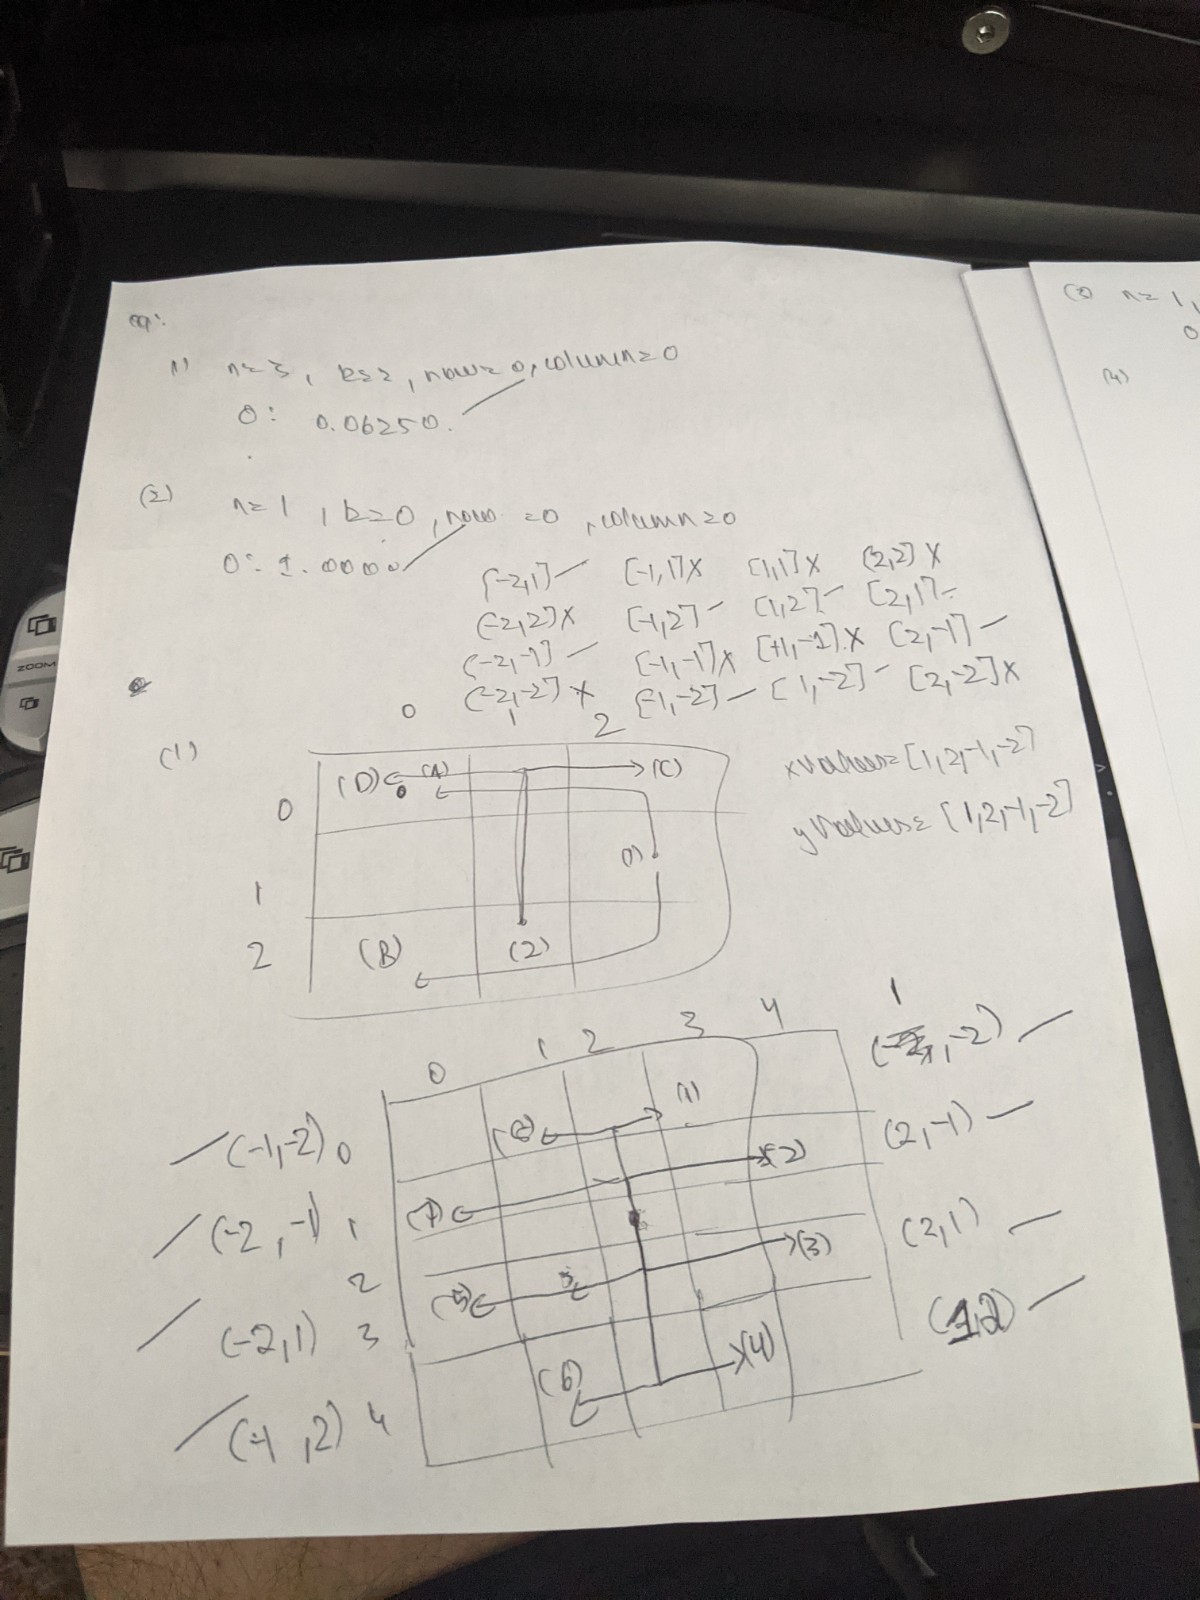 eg:
1) n=3, k=2, row=0, column=0
O: 0.06250.
(2) n=1, k=0, row=0, column=0
O: 1.0000
[-2,1] [-1,1]X [1,1]X (2,2)X
[-2,2]X [-1,2] [1,2] [2,1]
[-2,-1] [-1,-1]X [+1,-1]X [2,-1]
[-2,-2]X [-1,-2] [1,-2] [2,-2]X
(1)
0 1 2
0 (D) (A) (C)
1 (1)
2 (B) (2)
xValues=[1,2,-1,-2]
yValues=[1,2,-1,-2]
0 1 2 3 4
0 (8) (1)
1 (7) (2)
2
3 (5) (3)
4 (6) (4)
(-1,-2)
(-2,-1)
(-2,1)
(-1,2)
1
,-2)
(2,-1)
(2,1)
(1,2)
(3) n=1,
0
(4)
ZOOM